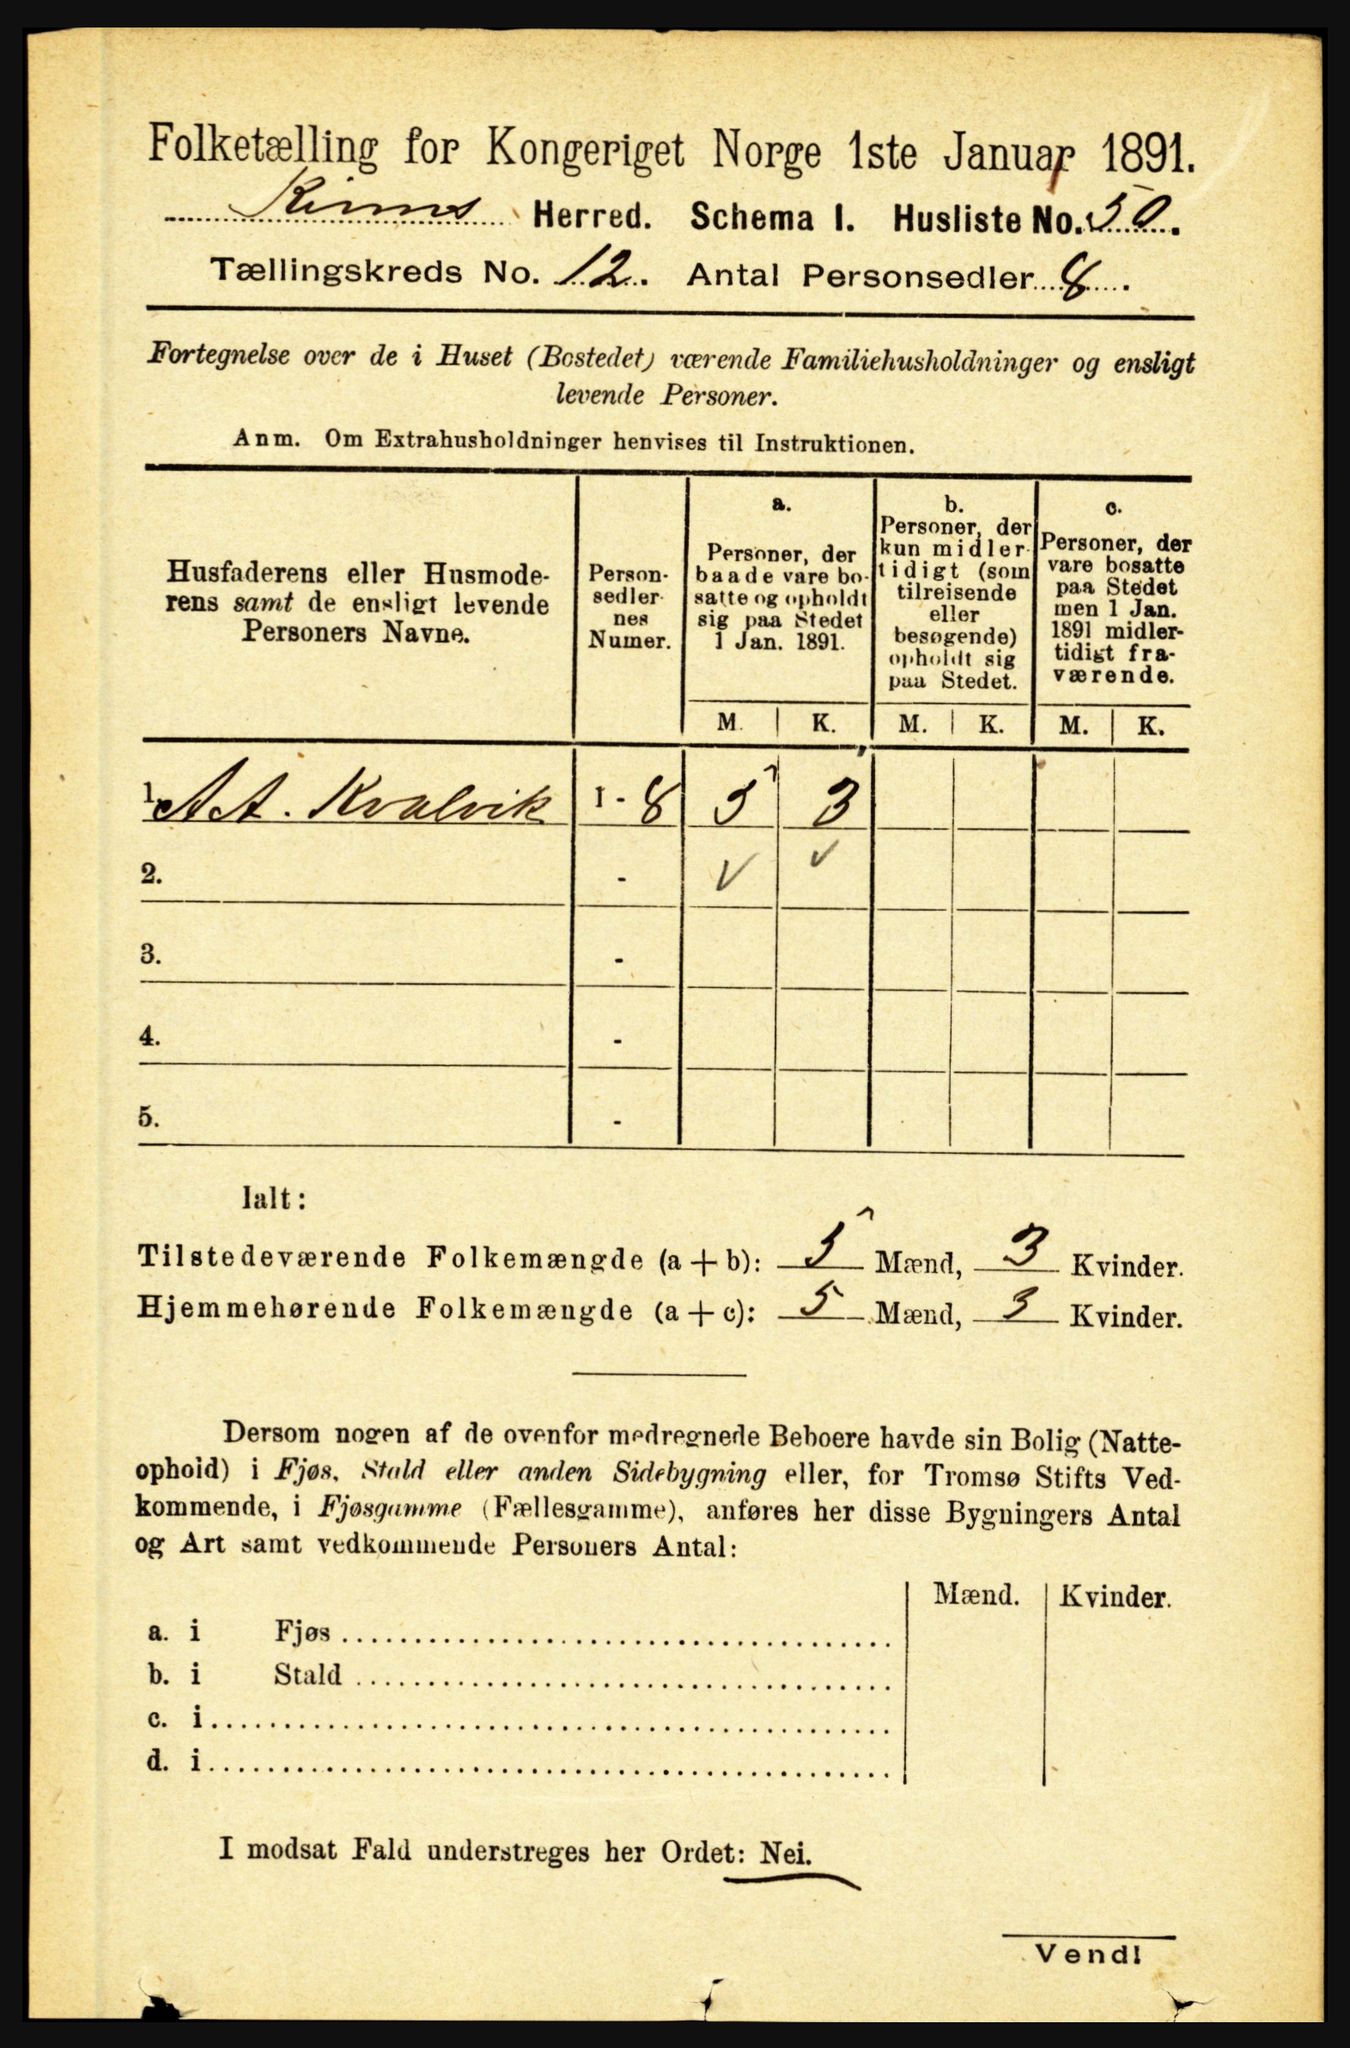 Folketælling for Kongeriget Norge 1ste Januar 1891.
Kinns Herred. Schema I. Husliste No. 50.
Tællingskreds No. 12. Antal Personsedler 8.
Fortegnelse over de i Huset (Bostedet) værende Familiehusholdninger og ensligt
levende Personer.
Anm. Om Extrahusholdninger henvises til Instruktionen.
Husfaderens eller Husmode-
rens samt de ensligt levende
Personers Navne.
Person-
sedler
nes
Numer.
a.
Personer, der
baade vare bo-
satte og opholdt
sig paa Stedet
1 Jan. 1891.
b.
Personer, der
kun midler-
tidigt (som
tilreisende
eller
besøgende)
opholdt sig
paa Stedet.
c.
Personer, der
vare bosatte
paa Stedet
men 1 Jan.
1891 midler-
tidigt fra-
værende.
M. K. M. K. M. K.
1. A A. Kvalvik 1 - 8 5 3
2. - ✓ ✓
3. -
4. -
5. -
Ialt:
Tilstedeværende Folkemængde (a + b): 5 Mænd, 3 Kvinder.
Hjemmehørende Folkemængde (a + c): 5 Mænd, 3 Kvinder.
Dersom nogen af de ovenfor medregnede Beboere havde sin Bolig (Natte-
ophold) i Fjøs, Stald eller anden Sidebygning eller, for Tromsø Stifts Ved-
kommende, i Fjøsgamme (Fællesgamme), anføres her disse Bygningers Antal
og Art samt vedkommende Personers Antal:
Mænd. Kvinder.
a. i Fjøs
b. i Stald
c. i
d. i
I modsat Fald understreges her Ordet: Nei.
Vend!